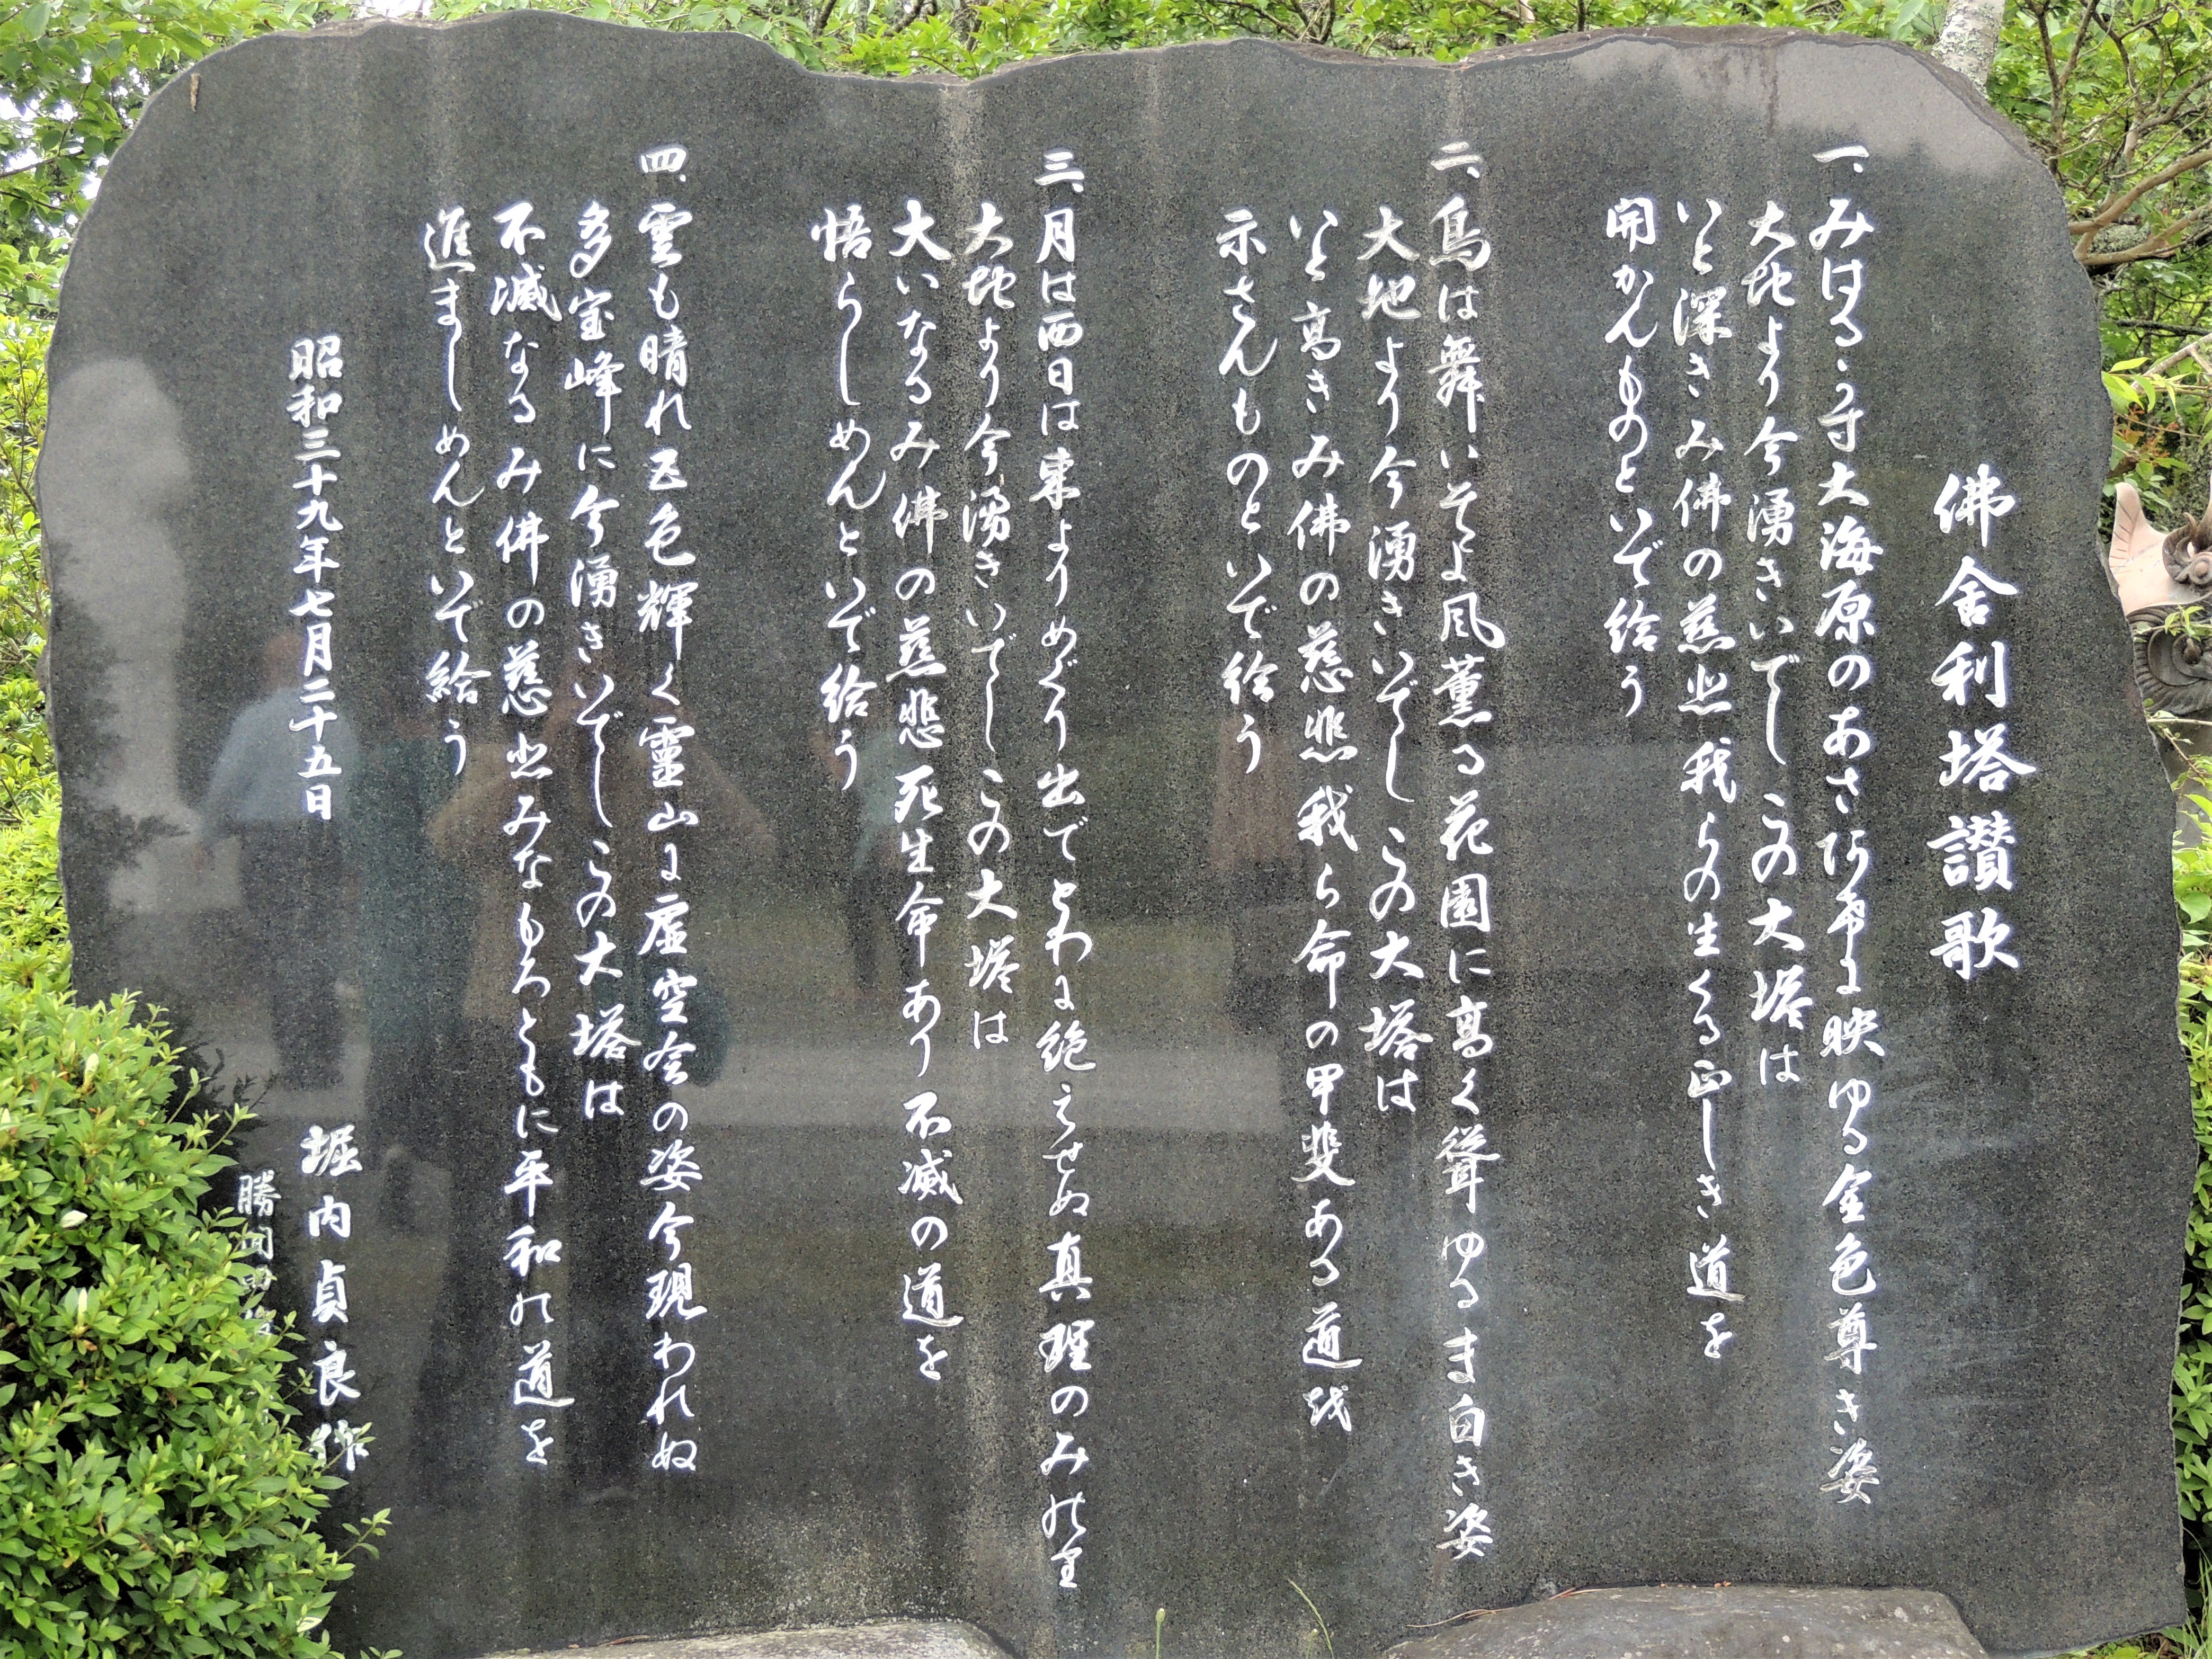 佛舎利塔讃歌
一、みはるかす大海原の映ゆる金色尊き姿
大地より今湧きいでしこの大塔は
いと深きみ佛の慈悲我らの生くる正しき道を
開かんものといで給う
二、鳥は舞いそよ風薫る花園に高く聳ゆるま白き姿
大地より今湧きいでしこの大塔は
いと高きみ佛の慈悲我ら命の甲斐ある道を
示さんものといで給う
三、月は西日は東よりめぐり出でとわに絶えせぬ真理のみのり
大地より今湧きいでしこの大塔は
大いなるみ佛の慈悲死生命あり不滅の道を
悟らしめんといで給う
四、雲も晴れ五色輝く靈山に虚空会の姿今現われぬ
多宝峰に今湧きいでしこの大塔は
不滅なるみ佛の慈悲みなもろともに平和の道を
進ましめんといで給う
昭和三十九年七月二十五日
堀内貞良作